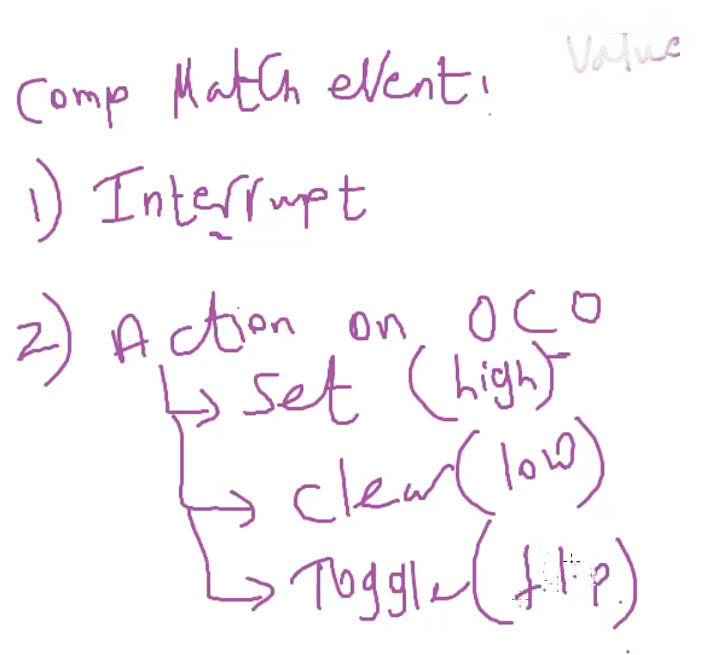 Value
Comp Match event:
1) Interrupt
2) Action on OC0
Set (high)
clear (low)
Toggle (flip)